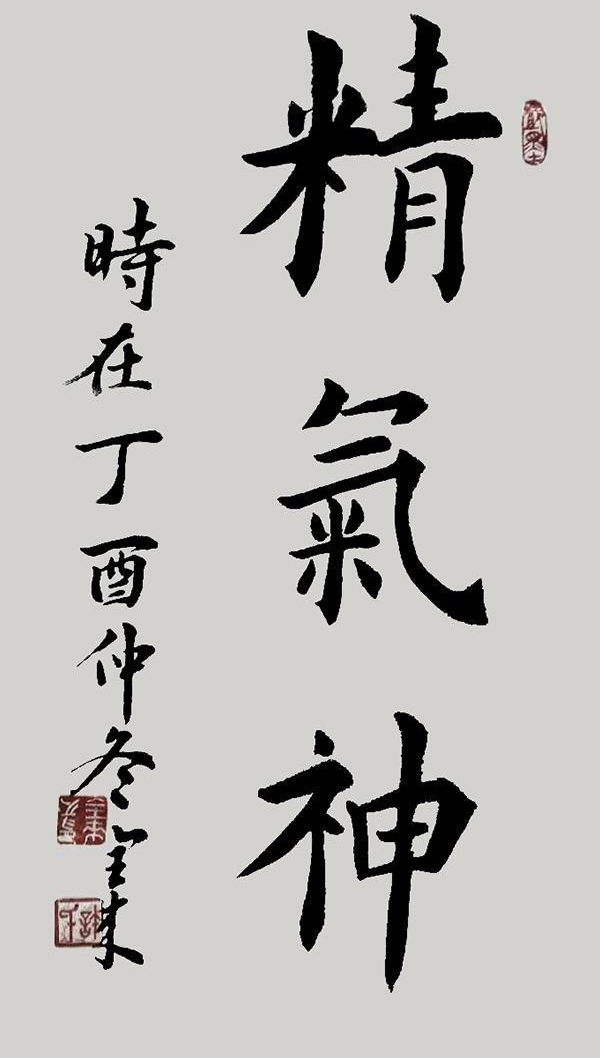 精氣神
時在丁酉仲冬全来